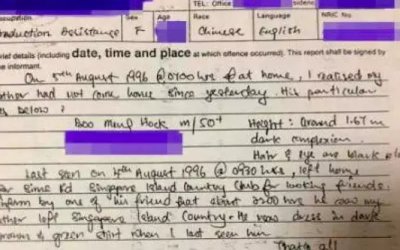 TEL: Office
Occupation Sex Age Race Language NRIC No.
Production Assistance F Chinese English
Brief details (including date, time and place at which offence occurred). This report shall be signed by
the informant.
On 5th August 1996 @ 0700 hrs at home, I realised my
father had not come home since yesterday. His particular
as below :
Boo Meng Hock m/50+ Height : Around 1.67 m
dark complexion
Hair & eye are black
Last seen on 4th August 1996 @ 0930 hrs, left home
for Sime Rd Singapore Island Country Club for looking friends.
Inform by one of his friend that about 0200 hrs he saw my
father left Singapore Island Country. He was dress in dark
brown & green shirt when I last seen him.
That's all